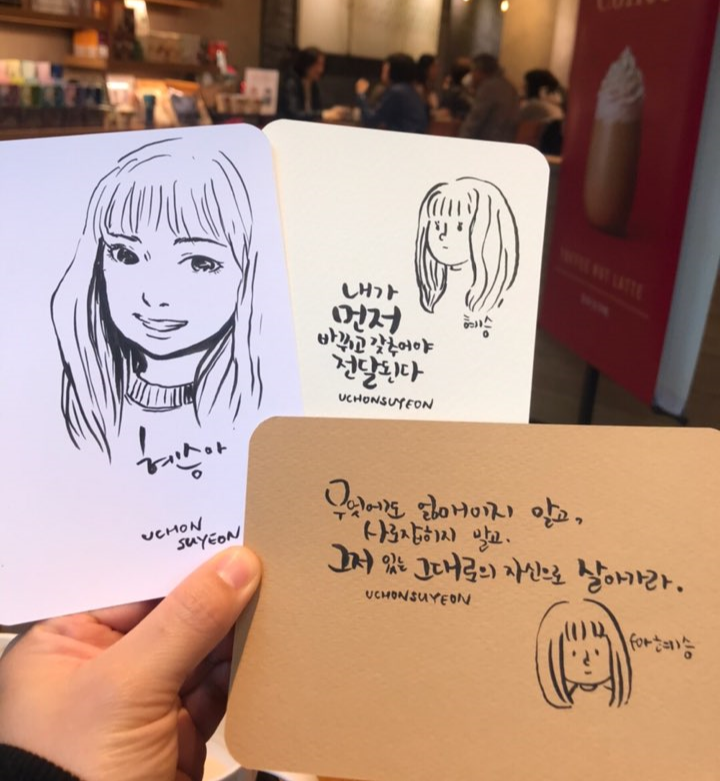 혜승아
UCHON
SUYEON
내가
먼저
바뀌고 갖추어야
전달된다
UCHONSUYEON
혜승
무엇에도 얽매이지 말고,
사로잡히지 말고.
그저 있는 그대로의 자신으로 살아가라.
UCHONSUYEON
for 혜승
TOFFEE NUT LATTE